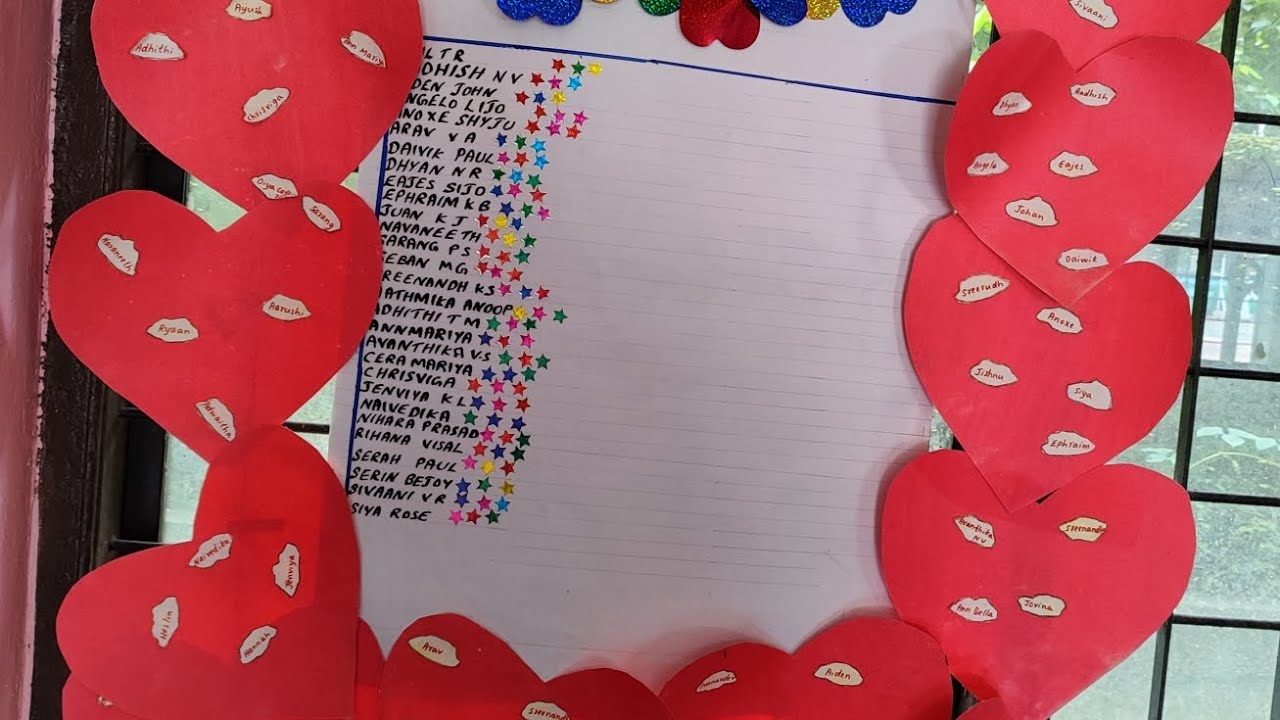 Ayush
Adhithi
Ann Mariya
Chrisviga
Sarang
Navaneeth
Aarushi
Ryaan
Naivedika
Jenviya
Hannah
L T R
DHISH N V
DEN JOHN
NGELO LIJO
NOXE SHYJU
ARAV V A
DAIVIK PAUL
DHYAN N R
EAJES SIJO
EPHRAIM K B
JUAN K J
NAVANEETH
SARANG P S
SEBAN MG
REENANDH K S
ATHMIKA ANOOP
ADHITHI T M
ANNMARIYA
AVANTHIKA V.S
CERA MARIYA
CHRISVIGA
JENVIYA K L
NAIVEDIKA
NIHARA PRASAD
RIHANA VISAL
SERAH PAUL
SERIN BEJOY
SIVAANI V R
SIYA ROSE
Sivaani
Dhyan
Aadhish
Angelo
Eajes
Johan
Daiwik
Sreerudh
Anoxe
Jishnu
Siya
Ephraim
Avanthika
NV
Sreenandh
Ann Bella
Jovina
Arav
Aiden
Sreenandh